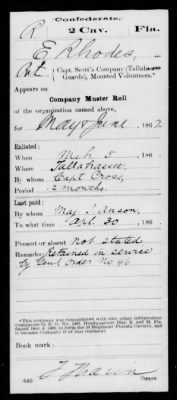 Confederate.
R 2 Cav. Fla.
E Rhodes,
Pvt., Capt. Scott's Company (Tallahassee
Guards), Mounted Volunteers.*
Appears on
Company Muster Roll
of the organization named above,
for May & June, 1862.
Enlisted:
When Mch 5, 186
Where Tallahassee
By whom Capt Cross,
Period 12 months.
Last paid:
By whom Maj Anson,
To what time Apl 30, 186
Present or absent Not stated
Remarks: Retained in service
by Genl Order No 46
*This company was consolidated with nine other independent
companies
Book mark:
(642)
Copyist.